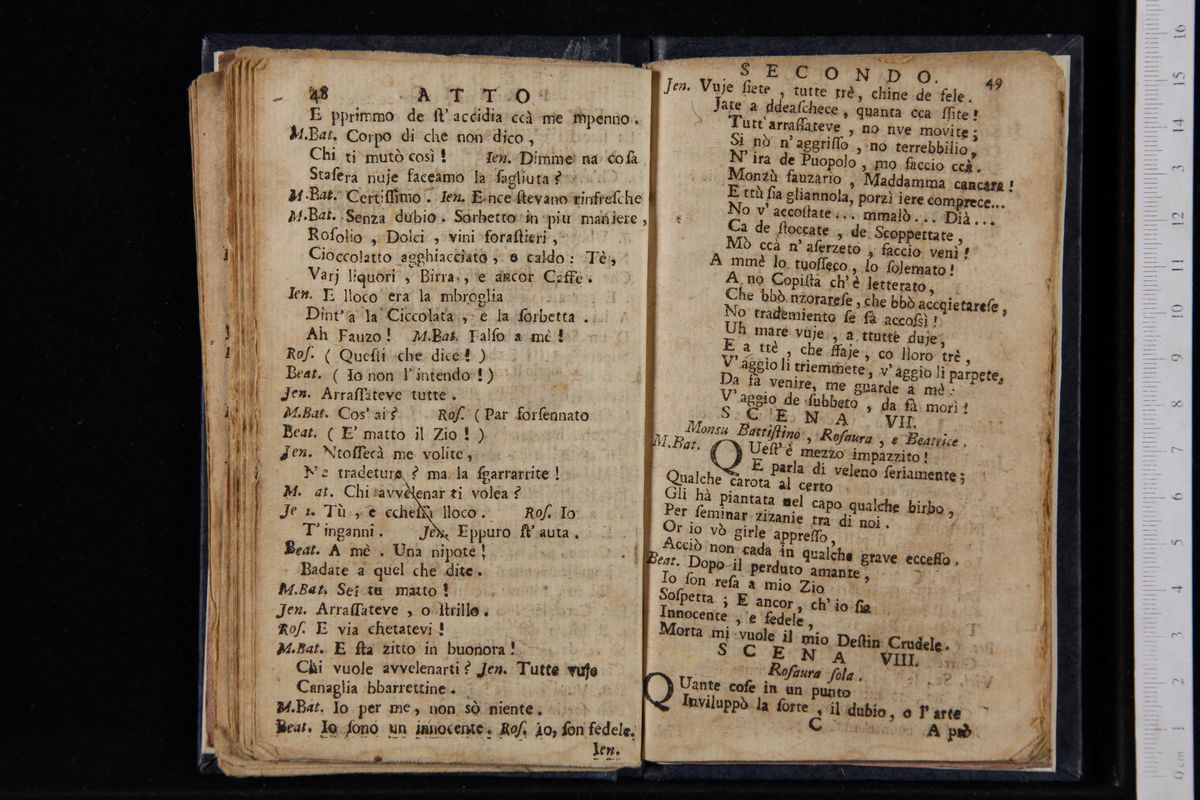 48 ATTO
E pprimmo de ſt' accidia ccà me mpenno.
M.Bat. Corpo di che non dico,
Chi ti mutò così! Ien. Dimme na coſa
Staſera nuje faceamo la ſagliuta?
M.Bat. Certiſſimo. Ien. E nce ſtevano rinfreſche
M.Bat. Senza dubio. Sorbetto in piu maniere,
Roſolio, Dolci, vini foraſtieri,
Cioccolatto agghiacciato, o caldo: Tè,
Varj liquori, Birra, e ancor Caffe.
Ien. E lloco era la mbroglia
Dint' a la Ciccolata, e la ſorbetta.
Ah Fauzo! M.Bat. Falſo a mè!
Roſ. (Queſti che dice!)
Beat. (Io non l'intendo!)
Jen. Arraſſateve tutte.
M.Bat. Cos' ai? Roſ. (Par forſennato
Beat. (E' matto il Zio!)
Jen. Ntoſſecà me volite,
Ne tradeture? ma la ſgarrarrite!
M. at. Chi avvelenarti volea?
Je 1. Tù, e ccheſſa lloco. Roſ. Io
T' inganni. Jen. Eppuro ſt' auta.
Beat. A mè. Una nipote!
Badate a quel che dite.
M.Bat. Sei tu matto!
Jen. Arraſſateve, o ſtrillo.
Roſ. E via chetatevi!
M.Bat. E ſta zitto in buonora!
Chi vuole avvelenarti? Jen. Tutte vuje
Canaglia bbarrettine.
M.Bat. Io per me, non sò niente.
Beat. Io ſono un innocente. Roſ. io, ſon fedele.
Ien.
SECONDO. 49
Jen. Vuje ſiete, tutte trè, chine de fele.
Jate a ddeaſchece, quanta cca ſſite!
Tutt' arraſſateve, no nve movite;
Si nò n' aggriſſo, no terrebbilio,
N' ira de Puopolo, mo faccio ccà.
Monzù fauzario, Maddamma cancara!
E ttù ſia gliannola, porzì iere comprece...
No v' accoſtate... mmalò... Dià...
Ca de ſtoccate, de Scoppettate,
Mò ccà n' aſerzeto, faccio venì!
A mmè lo tuoſſeco, lo ſolemato!
A no Copiſta ch' è letterato,
Che bbò nzorareſe, che bbò accqietareſe,
No trademiento ſe fà accoſsì!
Uh mare vuje, a ttutte duje,
E a ttè, che ſſaje, co lloro trè,
V' aggio li triemmete, v' aggio li parpete,
Da fà venire, me guarde a mè:
V' aggio de ſubbeto, da fà morì!
SCENA VII.
Monsu Battiſtino, Roſaura, e Beatrice.
M.Bat. QUeſt' è mezzo impazzito!
E parla di veleno ſeriamente;
Qualche carota al certo
Gli hà piantata nel capo qualche birbo,
Per ſeminar zizanie tra di noi.
Or io vò girle appreſſo,
Acciò non cada in qualche grave ecceſſo.
Beat. Dopo il perduto amante,
Io ſon reſa a mio Zio
Soſpetta; E ancor, ch' io ſia
Innocente, e fedele,
Morta mi vuole il mio Deſtin Crudele.
SCENA VIII.
Roſaura ſola.
QUante coſe in un punto
Inviluppò la ſorte, il dubio, o l' arte
C A prò